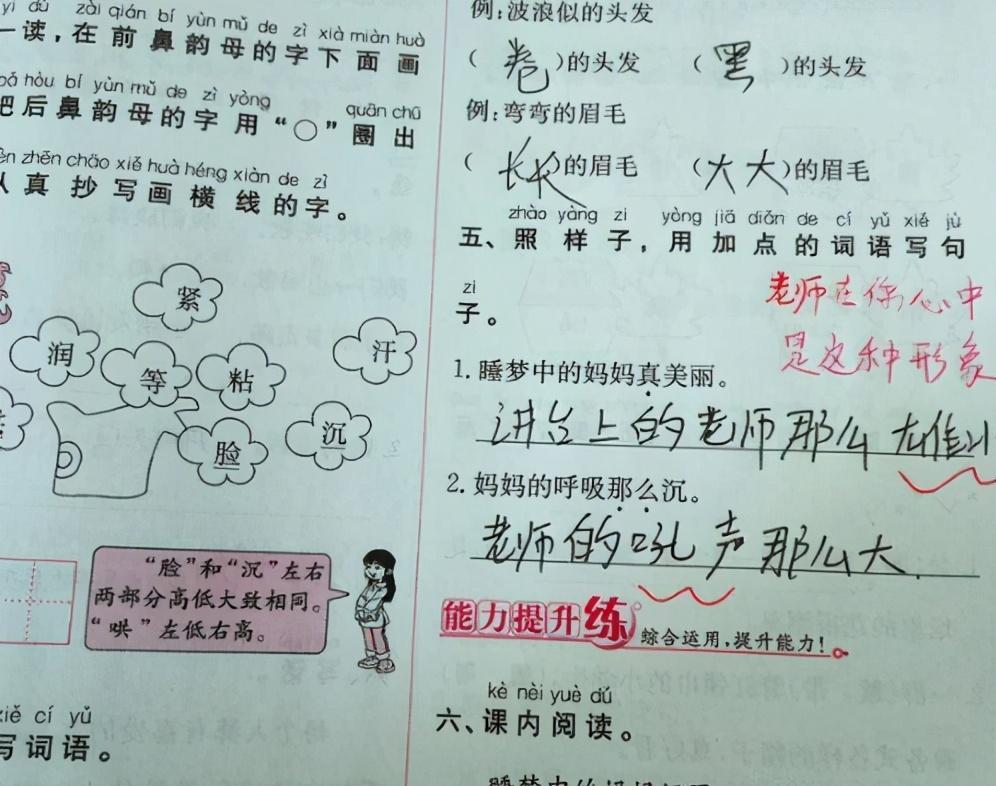 yì dú zài qián bí yùn mǔ de zì xià miàn huà
一读，在前鼻韵母的字下面画
bǎ hòu bí yùn mǔ de zì yòng quān chū
把后鼻韵母的字用“○”圈出
rèn zhēn chāo xiě huà héng xiàn de zì
认真抄写画横线的字。
紧
润
等
粘
汗
脸
沉
“脸”和“沉”左右
两部分高低大致相同。
“哄”左低右高。
xiě cí yǔ
写词语。
例：波浪似的头发
（卷）的头发 （黑）的头发
例：弯弯的眉毛
（长长的眉毛 （大大）的眉毛
zhào yàng zi yòng jiā diǎn de cí yǔ xiě jù
五、照样子，用加点的词语写句
zi
子。
老师在你心中
是这种形象
1. 睡梦中的妈妈真美丽。
讲台上的老师那么雄壮
2. 妈妈的呼吸那么沉。
老师的吼声那么大.
能力提升练 综合运用，提升能力！
kè nèi yuè dú
六、课内阅读。